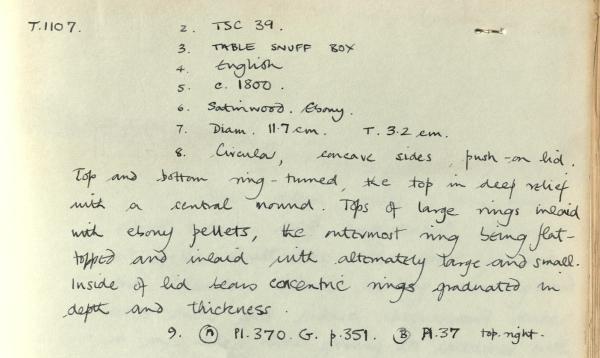 T.1107. 2. TSC 39.
3. TABLE SNUFF BOX
4. English
5. c. 1800.
6. Satinwood. Ebony.
7. Diam. 11.7 cm. T. 3.2 cm.
8. Circular, concave sides, push-on lid.
Top and bottom ring-turned, the top in deep relief
with a central mound. Tops of large rings inlaid
with ebony pellets, the outermost ring being flat-
topped and inlaid with alternately large and small.
Inside of lid bears concentric rings graduated in
depth and thickness.
9. (A) Pl. 370. G. p. 351. (B) Pl. 37 top right.